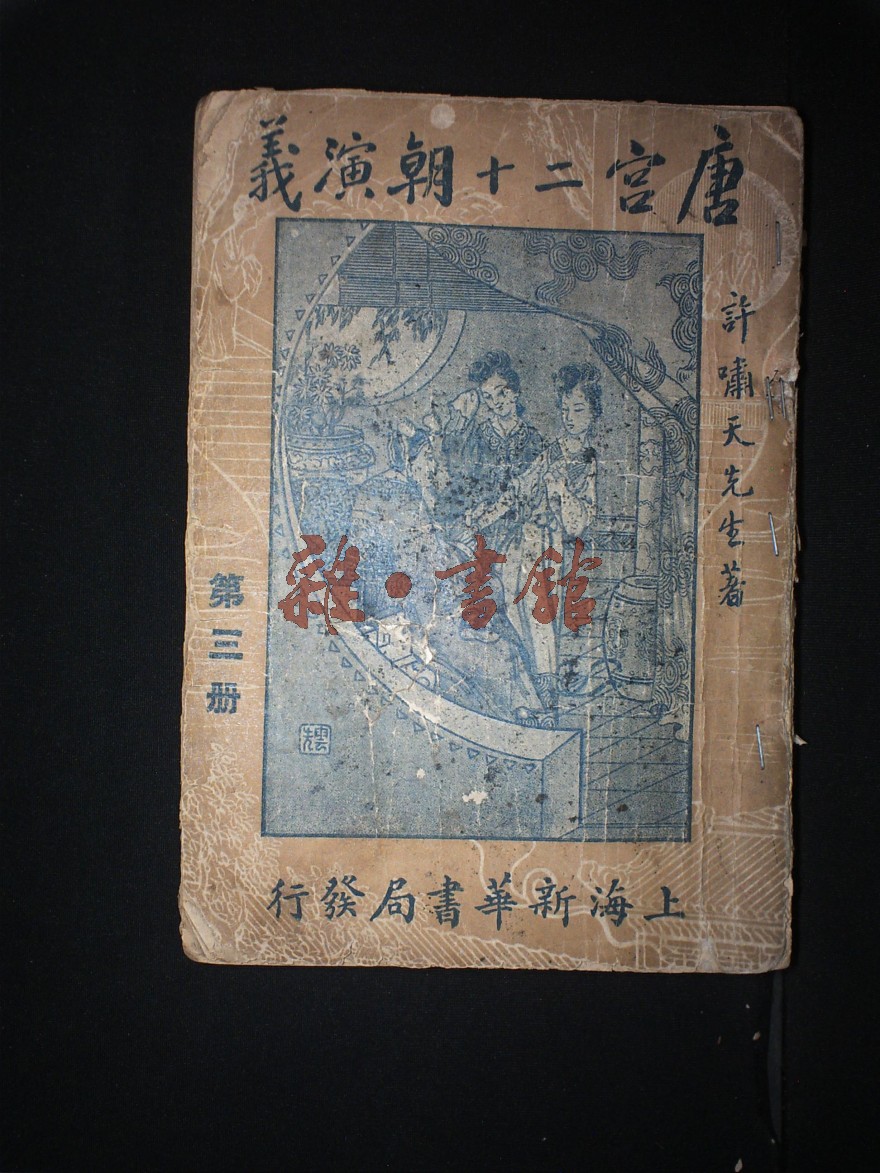 唐宮二十朝演義
許嘯天先生著
第三册
雜·書館
上海新華書局發行